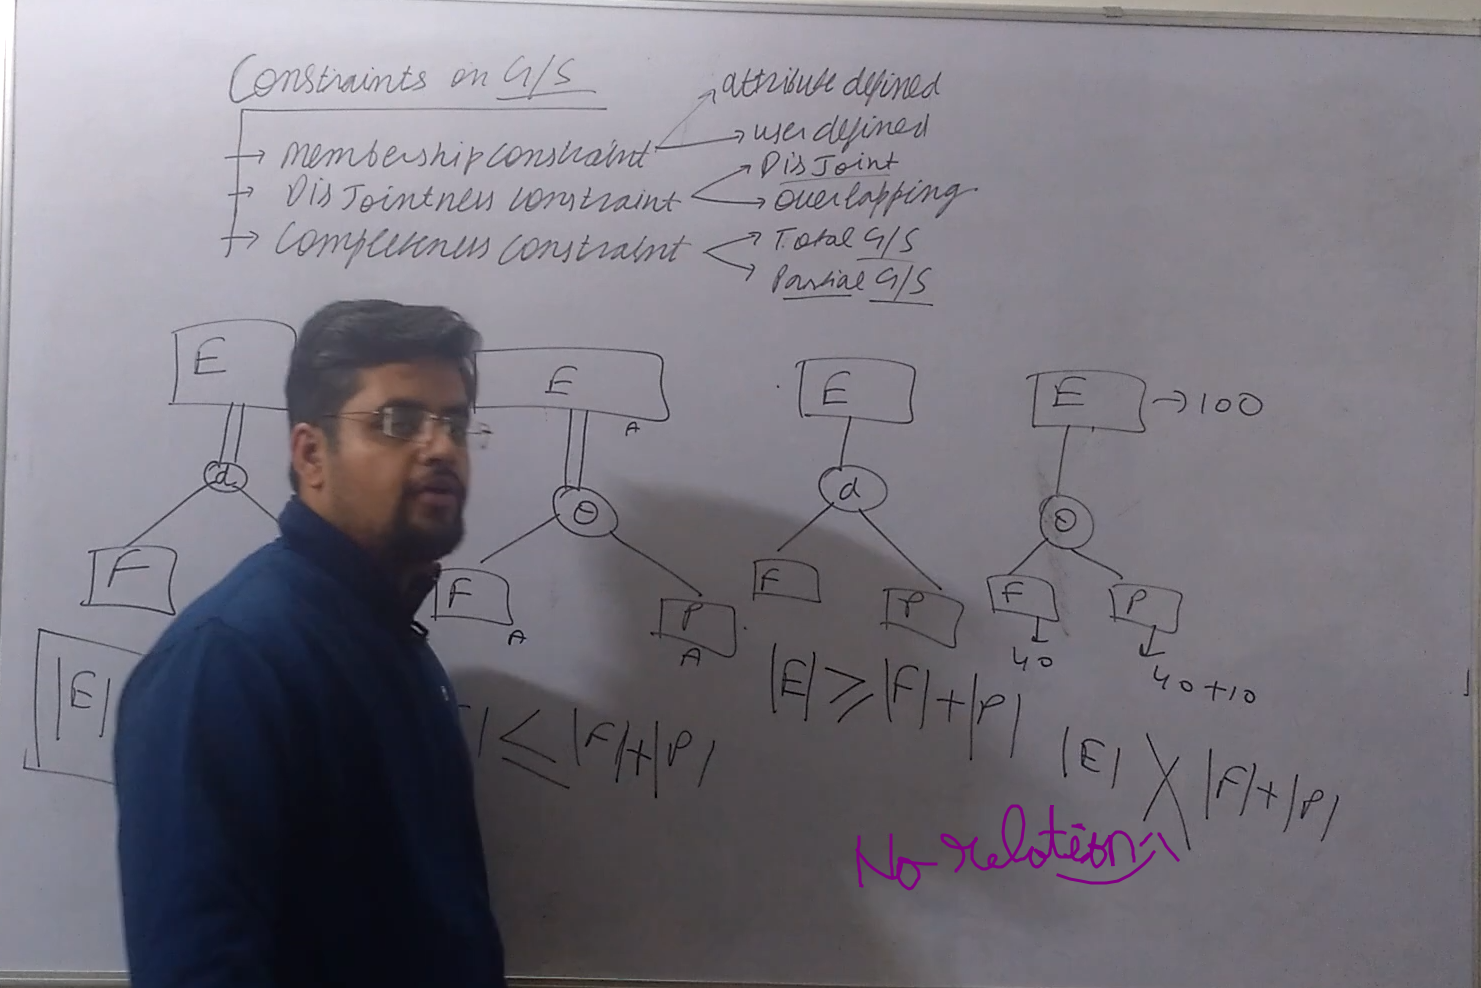 Constraints on G/S
→ Membership constraint → attribute defined
→ user defined
→ DisJointness constraint → DisJoint
→ overlapping
→ Completeness constraint → Total G/S
→ Partial G/S
E E E E → 100
A
d O d O
F F P F P
A A 40 40+10
|E| | ≤ |F|+|P| |E| ≥ |F|+|P| |E| |F|+|P|
No relation